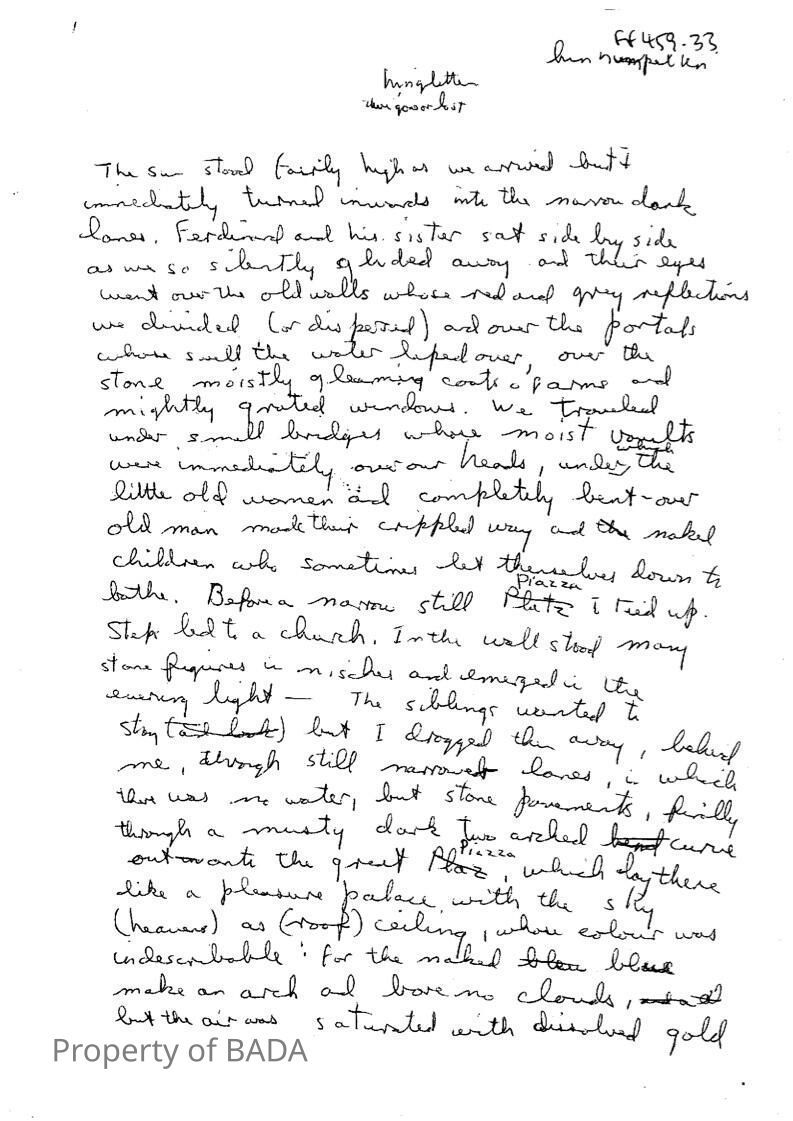 FF 459-33
The sun stood fairily high as we arrived but I
immediately turned inwards into the narrow dark
lanes. Ferdinand and his sister sat side by side
as we so silently glided away and their eyes
went over the old walls whose red and grey reflections
we divided (or dispersed) and over the portals
whose swell the water liped over, over the
stone moistly gleaming coats o' arms and
mightly grated windows. We traveled
under small bridges whose moist vaults
were immediately over our heads, under which the
little old women and completely bent-over
old man made their crippled way and the naked
children who sometimes let themselves down to
bathe. Before a narrow still Platz Piazza I tied up.
Steps led to a church. In the wall stood many
stone figures in nisches and emerged in the
evening light — The siblings wanted to
stay (and look) but I dragged them away, behind
me, through still narrower lanes, in which
there was no water, but stone pavements, finilly
through a musty dark two arched bend curve
out onto the great Plaz Piazza, which lay there
like a pleasure palace with the sky
(heavens) as (roof) ceiling, whose colour was
indescribable: for the naked blue
make an arch and bore no clouds,
but the air was saturated with dissolved gold
Property of BADA